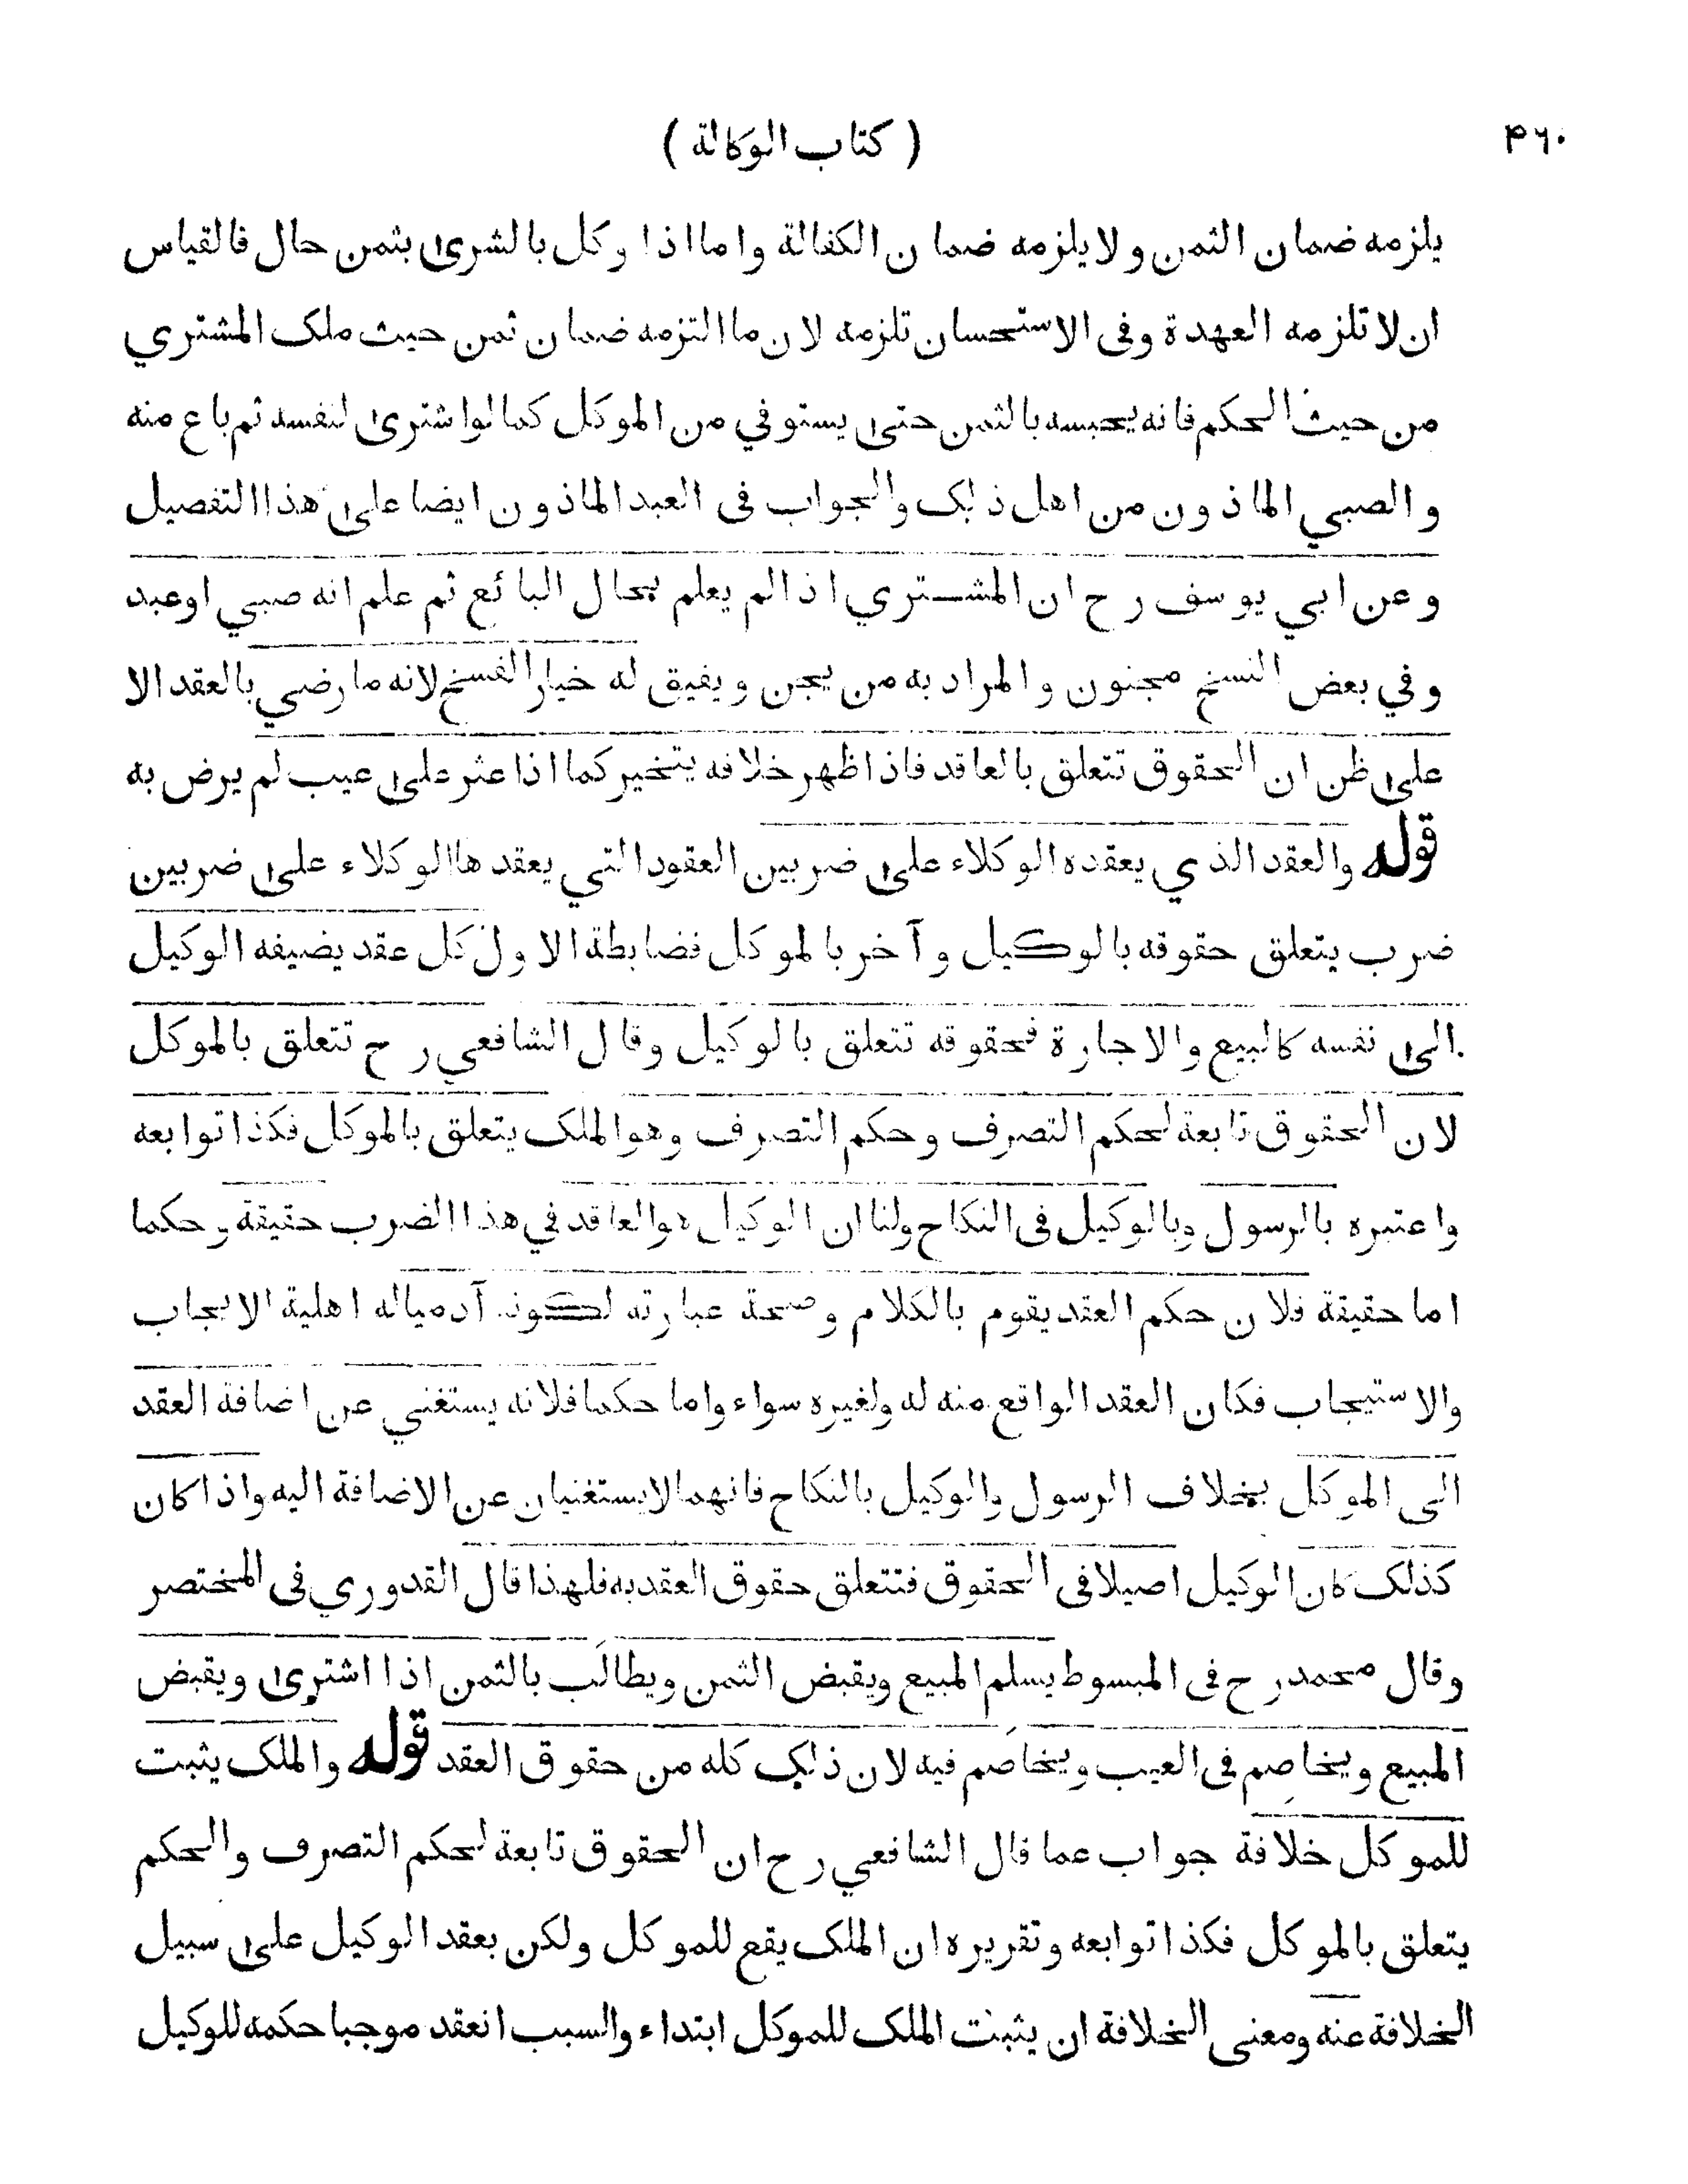 ٤٦٠
( كتاب الوكالة )
يلزمه ضمان الثمن ولا يلزمه ضمان الكفالة واما اذا وكل بالشرى بثمن حال فالقياس
ان لا تلزمه العهدة وفى الاستحسان تلزمه لان ما التزمه ضمان ثمن حيث ملك المشتري
من حيث الحكم فانه يحبسه بالثمن حتى يستوفي من الموكل كما لو اشترى لنفسه ثم باع منه
والصبي الماذون من اهل ذلك والجواب فى العبد الماذون ايضا على هذا التفصيل
وعن ابي يوسف رح ان المشتري اذا لم يعلم بحال البائع ثم علم انه صبي او عبد
وفي بعض النسخ مجنون والمراد به من يجن ويفيق له خيار الفسخ لانه ما رضي بالعقد الا
على ظن ان الحقوق تتعلق بالعاقد فاذا ظهر خلافه يتخير كما اذا عثر على عيب لم يرض به
قوله والعقد الذي يعقده الوكلاء على ضربين العقود التي يعقدها الوكلاء على ضربين
ضرب يتعلق حقوقه بالوكيل وآخر بالموكل فضابطة الاول كل عقد يضيفه الوكيل
الى نفسه كالبيع والاجارة فحقوقه تتعلق بالوكيل وقال الشافعي رح تتعلق بالموكل
لان الحقوق تابعة لحكم التصرف وحكم التصرف وهو الملك يتعلق بالموكل فكذا توابعه
واعتبره بالرسول وبالوكيل فى النكاح ولنا ان الوكيل هو العاقد في هذا الضرب حقيقة وحكما
اما حقيقة فلان حكم العقد يقوم بالكلام وصحة عبارته لكونه آدميا له اهلية الايجاب
والاستيجاب فكان العقد الواقع منه له ولغيره سواء واما حكما فلانه يستغني عن اضافة العقد
الى الموكل بخلاف الرسول والوكيل بالنكاح فانهما لا يستغنيان عن الاضافة اليه واذا كان
كذلك كان الوكيل اصيلا فى الحقوق فتتعلق حقوق العقد به فلهذا قال القدوري فى المختصر
وقال محمد رح فى المبسوط يسلم المبيع ويقبض الثمن ويطالَب بالثمن اذا اشترى ويقبض
المبيع ويخاصِم فى العيب ويخاصَم فيه لان ذلك كله من حقوق العقد قوله والملك يثبت
للموكل خلافة جواب عما قال الشافعي رح ان الحقوق تابعة لحكم التصرف والحكم
يتعلق بالموكل فكذا توابعه وتقريره ان الملك يقع للموكل ولكن بعقد الوكيل على سبيل
الخلافة عنه ومعنى الخلافة ان يثبت الملك للموكل ابتداء والسبب انعقد موجبا حكمه للوكيل